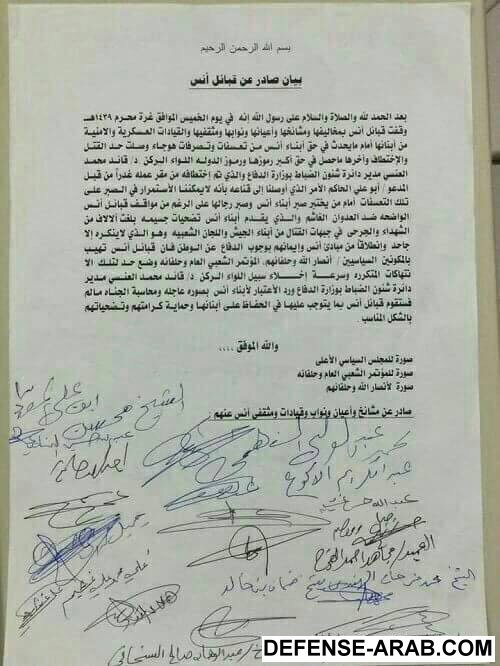 بسم الله الرحمن الرحيم
بيان صادر عن قبائل أنس
بعد الحمد لله والصلاة والسلام على رسول الله إنه في يوم الخميس الموافق غرة محرم ١٤٣٩هـ
وقفت قبائل أنس بمخاليفها ومشائخها وأعيانها ونوابها ومثقفيها والقيادات العسكرية والامنية
من أبنائها أمام مايحدث في حق أبناء أنس من تعسفات وتصرفات هوجاء وصلت حد القتل
والإختطاف وأخرها ماحصل في حق أكبر رموزها ورموز الدوله اللواء الركن د/ قائد محمد
العنسي مدير دائرة شئون الضباط بوزارة الدفاع والذي تم إختطافه من مقر عمله غدراً من قبل
المدعو / أبو علي الحاكم الأمر الذي أوصلنا إلى قناعه بأنه لايمكننا الأستمرار في الصبر على
تلك التعسفات أمام من يختبر صبر أبناء أنس وصبر رجالها على الرغم من مواقف قبائل أنس
الواضحه ضد العدوان الغاشم والذي يقدم أبناء أنس تضحيات جسيمه بلغت ألالاف من
الشهداء والجرحى في جبهات القتال من أبناء الجيش واللجان الشعبيه وهو الذي لاينكره إلا
جاحد وإنطلاقاً من مبادئ أنس وإيمانهم بوجوب الدفاع عن الوطن فان قبائل أنس تهيب
بالمكونين السياسيين / أنصار الله وحلفائهم، المؤتمر الشعبي العام وحلفائه وضع حد لتلك الا
نتهاكات المتكرره وسرعة إخلاء سبيل اللواء الركن د/ قائد محمد العنسي مدير
دائرة شئون الضباط بوزارة الدفاع ورد الأعتبار لأبناء أنس بصوره عاجله ومحاسبة الجناه مالم
فستقوم قبائل أنس بما يتوجب عليها في الحفاظ على أبنائها وحماية كرامتهم وتضحياتهم
بالشكل المناسب .
والله الموفق ،،،،
صورة للمجلس السياسي الأعلى
صورة للمؤتمر الشعبي العام وحلفائه
صورة لأنصار الله وحلفائهم
صادر عن مشائخ وأعيان ونواب وقيادات ومثقفي أنس عنهم
الشيخ محسن
عبد الكريم الاكوع
عبد الله
العميد/ مجاهد احمد
الشيخ محمد
ضمان بن خالد
عبد الوهاب صالح
DEFENSE-ARAB.COM